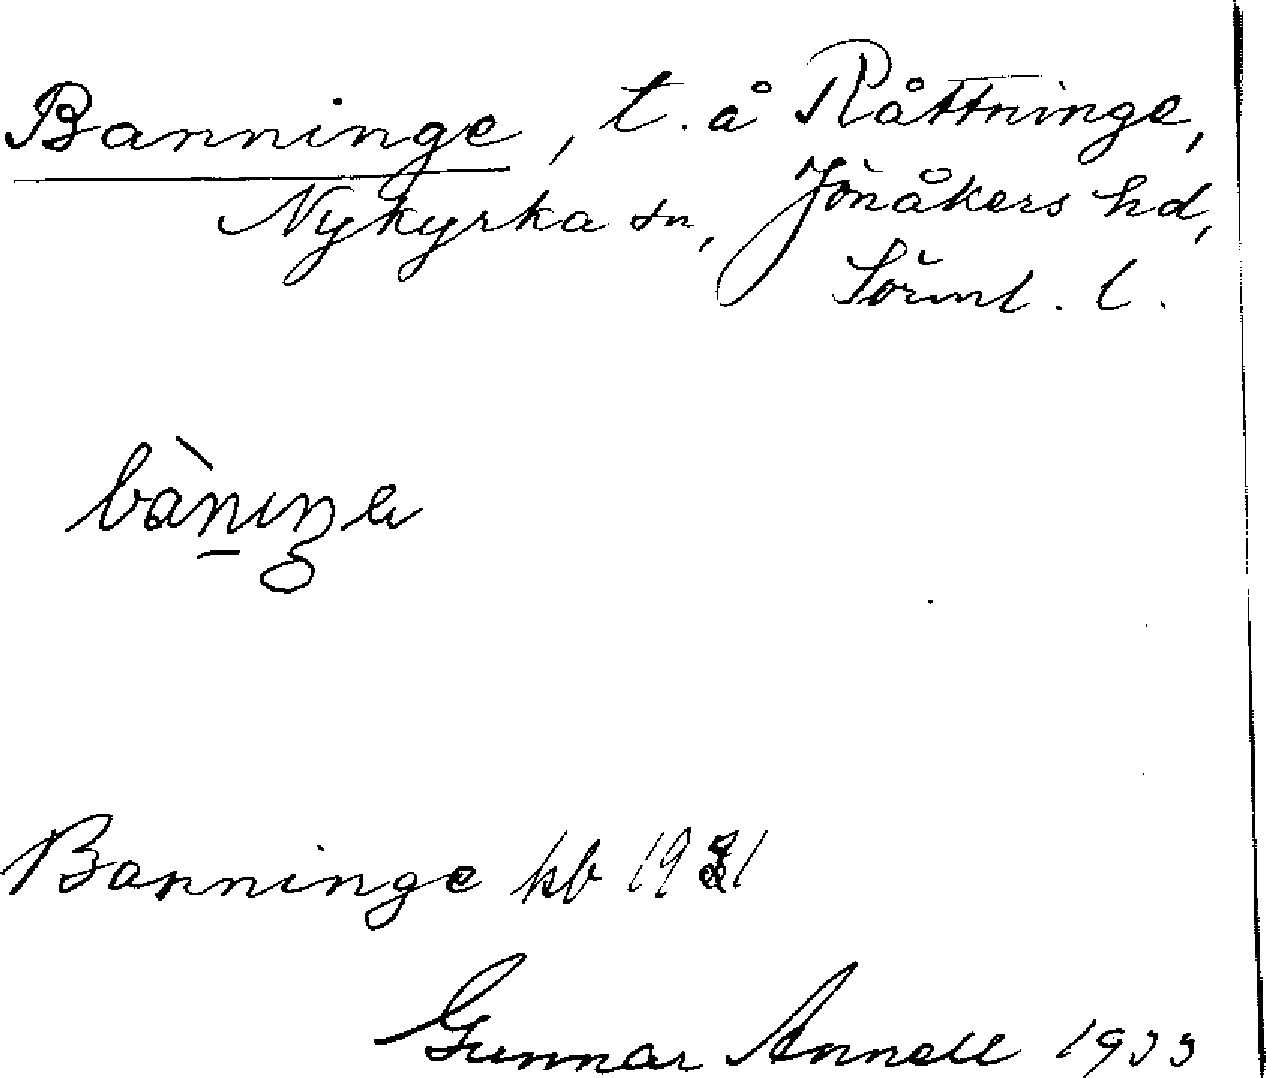 Banninge, t. å Råttninge,
Nykyrka sn, Jönåkers hd,
Sörml. l.
bàn̲ıŋe
Banninge kb
Gunnar Annell 1933